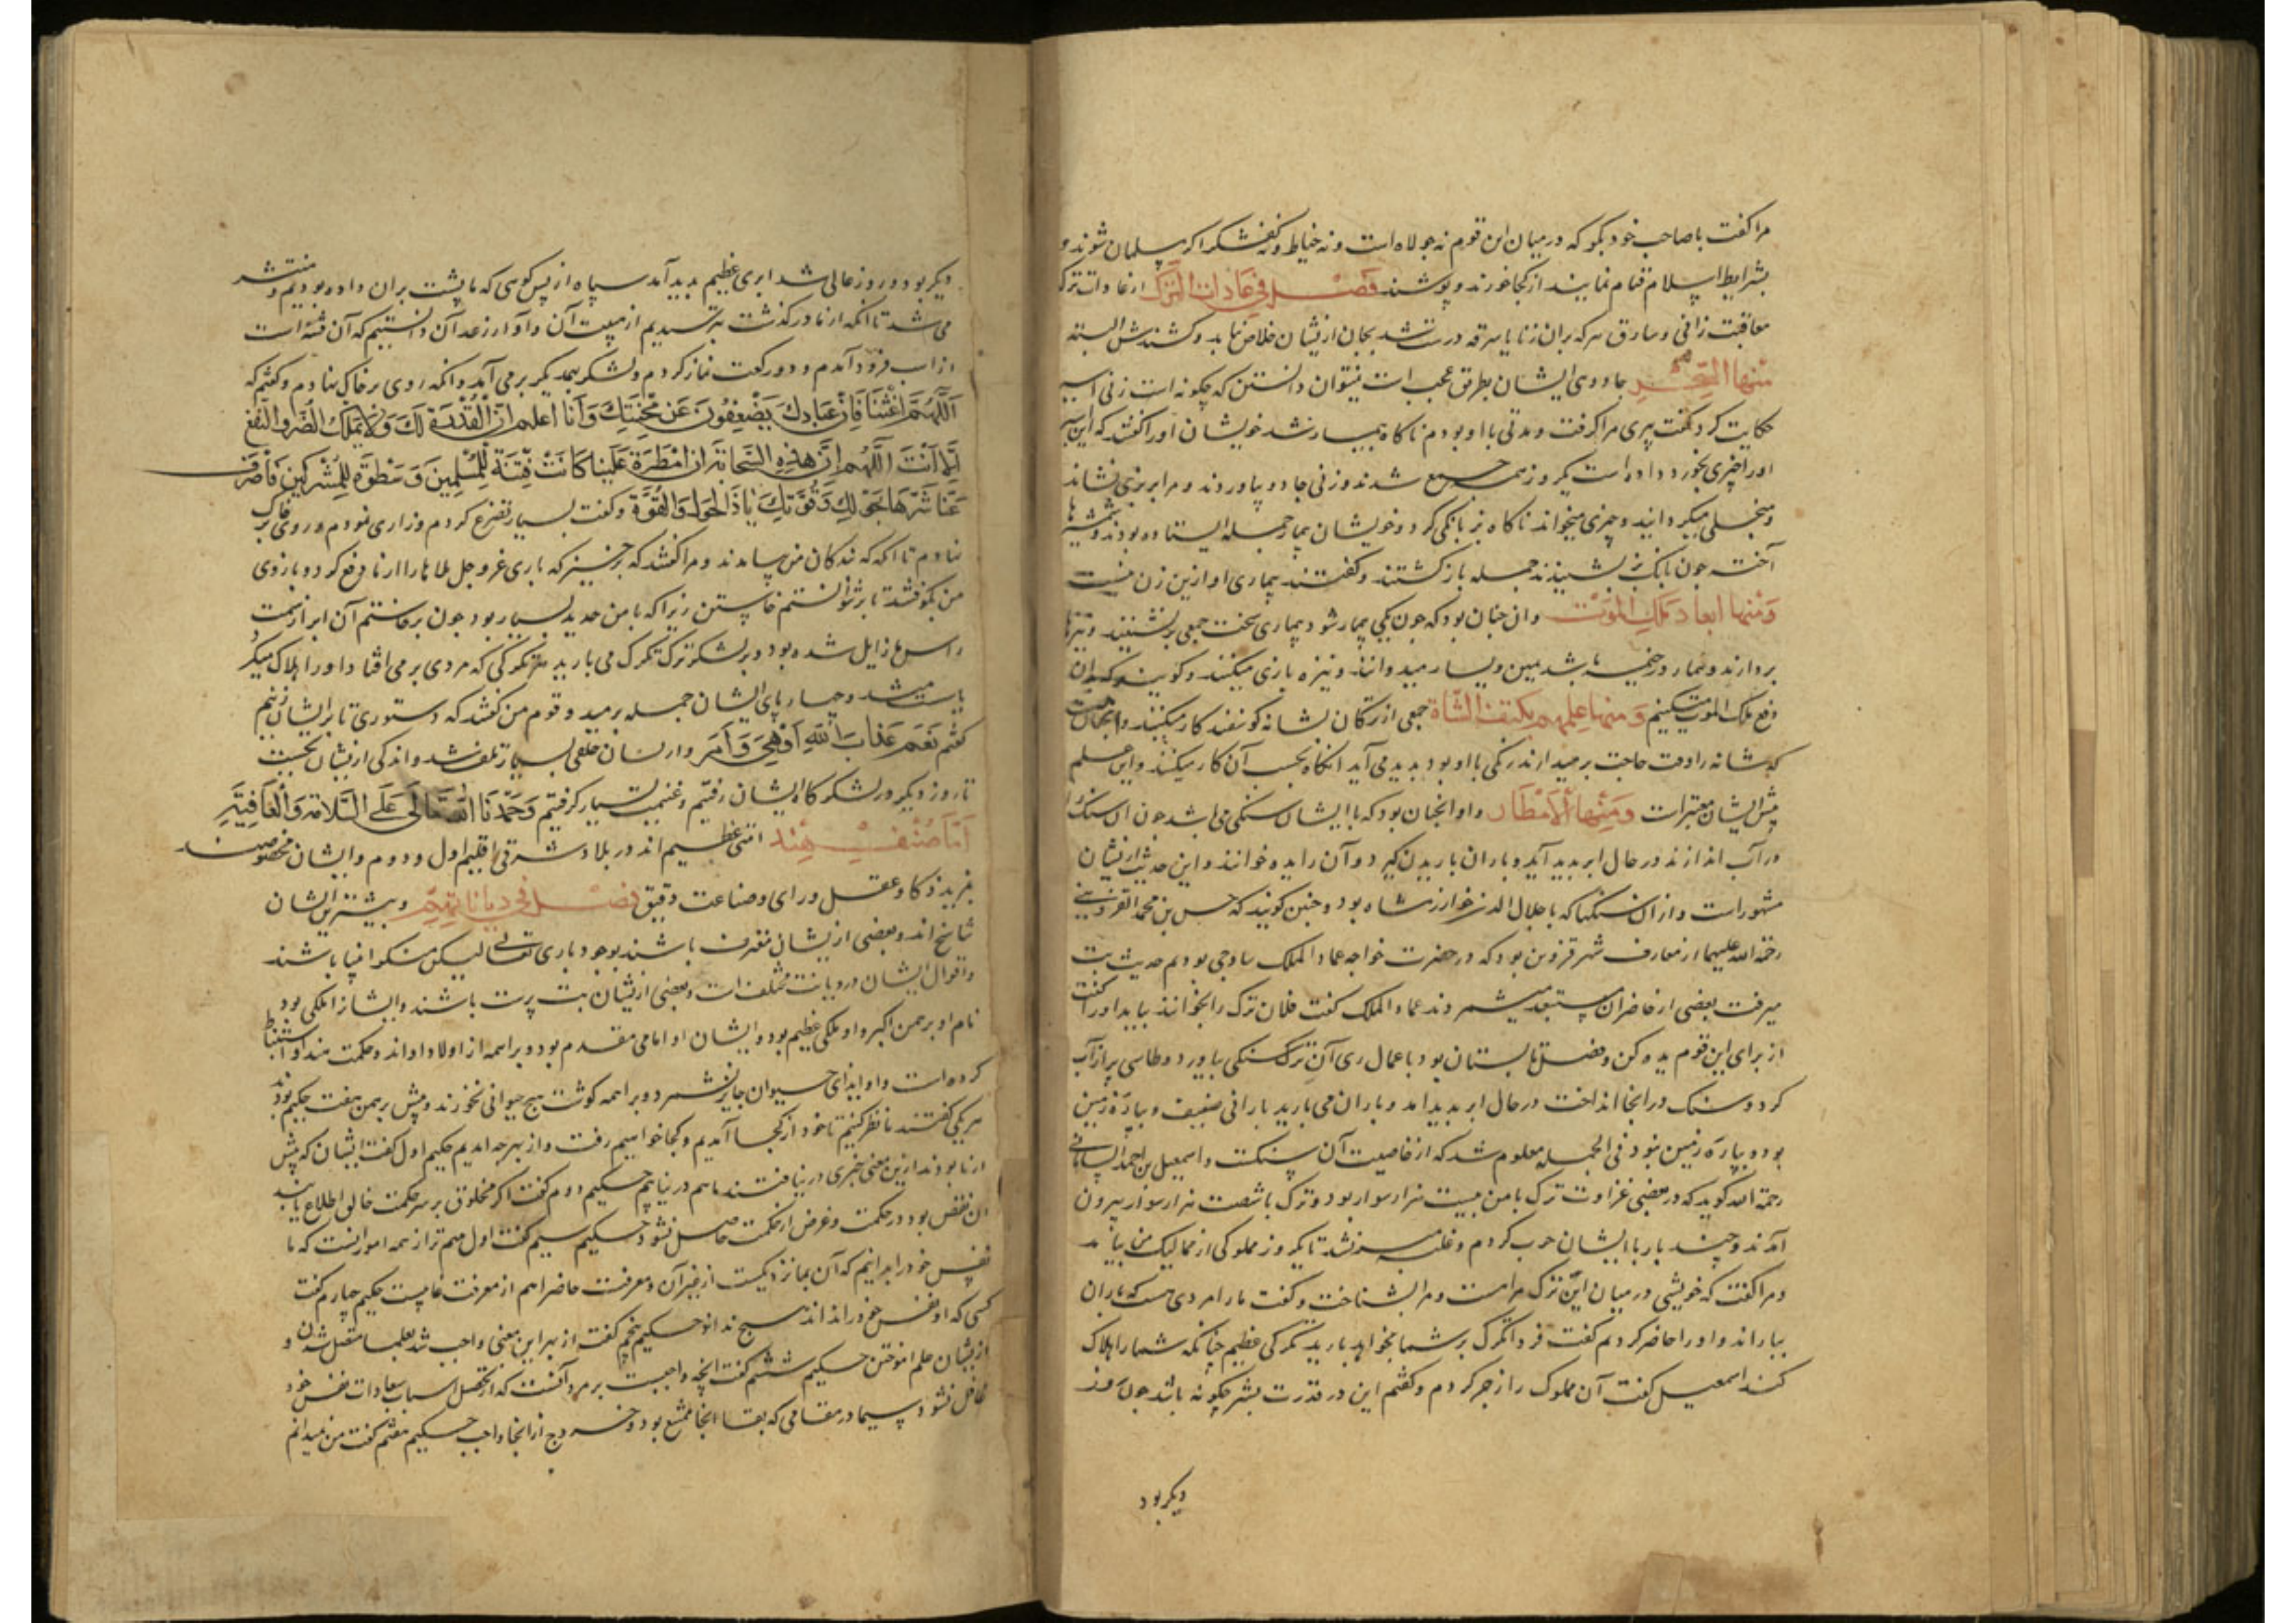 مرا کفت با صاحب خود بکو که در میان این قوم نه جولاه است و نه خیاط و نه کفشکر اکر مسلمان شوند و
بشرایط اسلام قیام نمایند از کجا خورند و پوشند فصل فی عادات الترک از عادات ترک
معاقبت زانی و سارق هر که بران زنا یا سرقه درست شد بجان ازیشان خلاص نیابد و کشندش البته
منها السحر جادوی ایشان بطریق عجب است نتوان دانستن که چکونه است زنی اسیر
حکایت کرد کفت پیری مرا کرفت و مدتی با او بودم ناکاه بیمار شد خویشان او را کفتند که این
او را چیزی بخورد داده است یکروز همه جمع شدند و زنی جادو بیاوردند و مرا بر بزی نشاند
و منجلی میکردانید و چیزی میخواند ناکاه بز بانکی کرد و خویشان بیمار جمله ایستاده بودند و شمشیرها
آخته چون بانک بز بشنیدند جمله باز کشتند و کفتند بیماری او ازین زن نیست
و منها ابعاد ملک الموت و ان چنان بود که چون یکی بیمار شود بیماری سخت جمعی برنشینند و نیزها
بردارند و بیمار در خیمه باشد یمین و یسار میدوانند و نیزه بازی میکنند و کویند که ان
دفع ملک الموت میکنیم و منها علمهم بکتف الشاة جمعی از ترکان بشانه کوسفند کار میکنند و انچنانست
که شانه را وقت حاجت برمیدارند رنکی با او بود بدید می آید انکاه بحسب آن کار میکنند و این علم
پیش ایشان معتبر است و منها الامطار و او انچنان بود که با ایشان سنکی می باشد چون ان سنک را
در آب اندازند در حال ابر بدید آید و باران باریدن کیرد و آن را یده خوانند و این حدیث ازیشان
مشهور است و از ان سنکها که با جلال الدین خوارزمشاه بود و چنین کویند که حسن بن محمد القزوینی
رحمة الله علیهما از معارف شهر قزوین بود که در حضرت خواجه عماد الملک ساوجی بودم حدیث یت
میرفت بعضی از حاضران مستبعد میشمردند عماد الملک کفت فلان ترک را بخوانند بیاید او را کفت
از برای این قوم یده کن و فصل تابستان بود باعمال ری آن ترک سنکی بیاورد و طاسی پر از آب
کرد و سنک در انجا انداخت در حال ابر بدید امد و باران می بارید بارانی ضعیف و بپاره زمین
بود و بپاره زمین نبود فی الجمله معلوم شد که از خاصیت آن سنکست و اسمعیل بن احمد السامانی
رحمة الله کوید که در بعضی غزاوت ترک با من بیست هزار سوار بود و ترک با شصت هزار سوار بیرون
آمدند و چند بار با ایشان حرب کردم و غلبه میسر نشد تا یکروز مملوکی از ممالیک من بیامد
و مرا کفت که خویشی در میان این ترک مراست و مرا بشناخت و کفت ما را مردی هست که باران
بباراند و او را حاضر کردم کفت فردا تکرک بر شما بخواهد بارید تکرکی عظیم چنانکه شما را هلاک
کند اسمعیل کفت آن مملوک را زجر کردم و کفتم این در قدرت بشر چکونه باشد چون روز
دیکر بود
دیکر بود و روز عالی شد ابری عظیم بدید آمد سیاه از پس کوهی که ما پشت بران داده بودیم و منتشر
می شد تا انکه از ما در کذشت بترسیدیم از هیبت آن و آواز رعد آن دانستیم که آن فتنه است
از اسب فرود آمدم و دو رکعت نماز کردم و لشکر بیمدیکر بر می آید و انکه روی بر خاک نهادم و کفتم که
اللهم اغثنا فان عبادک یضعفون عن محنتک و انا اعلم ان القدرة لک و لا یملک الضر و النفع
الا انت اللهم ان هذه السحابة ان امطرت علینا کانت فتنة للمسلمین و سطوة للمشرکین فاصرف
عنا شرها بحولک و قوتک یا ذا الحول و القوة و کفت بسیار تضرع کردم و زاری نمودم و روی بر خاک
نهادم تا انکه که بندکان من بیامدند و مرا کفتند که برخیز که باری عز و جل بلاها را از ما دفع کرد و بازوی
من بکرفتند تا برتوانستم خاستن زیرا که با من حدید بسیار بود چون برخاستم آن ابر از سمت
راس ما زایل شده بود و بر لشکر ترک تکرک می بارید هر تکرکی که مردی بر می افتاد او را هلاک میکرد
یا سست میشد و چهارپای ایشان جمله برمید و قوم من کفتند که دستوری تا بر ایشان زنیم
کفتم نعم عذاب الله ادهی و امر و از یشان خلقی بسیار تلف شد و اندکی ازیشان بجست
تا روز دیکر در لشکرکاه ایشان رفتیم و غنیمت بسیار کرفتیم و حمدنا الله تعالی علی السلامة و العافیة
اما صنف هند امتی عظیم اند در بلاد شرقی اقلیم اول و دوم و ایشان مخصوصند
بمزید ذکا و عقل و رای و صناعت دقیق فصل فی دیاناتهم و بیشتر ایشان
تناسخ اند و بعضی ازیشان معترف باشند بوجود باری تعالی لیکن منکر انبیا باشند
و اقوال ایشان در دیانت مختلف است و بعضی ازیشان بت پرست باشند و ایشان را ملکی بود
نام او برهمن اکبر و او ملکی عظیم بود و ایشان او امامی مقدم بود و براهمه از اولاد او اند و حکمت هند او استنباط
کرده است و او ایذای حیوان جایز نشمرد و براهمه کوشت هیچ حیوانی نخورند و پیش برهمن هفت حکیم بودند
هر یکی کفتند تا نظر کنیم تا خود از کجا آمدیم و کجا خواهیم رفت و از بهر چه امدیم حکیم اول کفت ایشان که پیش
از ما بودند ازین معنی خبری در نیافتند ما هم در نیابیم حکیم دوم کفت اکر مخلوق بر سر حکمت خالق اطلاع یابند
ان نقص بود در حکمت و غرض از حکمت حاصل نشود حکیم سیم کفت اول مهم تر از همه امور انست که ما
نفس خود را بدانیم که آن بما نزدیکست از غیر آن و معرفت حاضر اهم از معرفت غایبست حکیم چهارم کفت
کسی که او نفس خود را نداند هیچ نداند حکیم پنجم کفت از بهر این معنی واجب شد بعلما متصل شدن و
ازیشان علم اموختن حکیم ششم کفت انچه واجبست بر مرد آنست که از تحصیل اسباب سعادات نفس خود
غافل نشود سیما در مقامی که بقا انجا ممتنع بود و خروج از انجا واجب حکیم هفتم کفت من نمیدانم